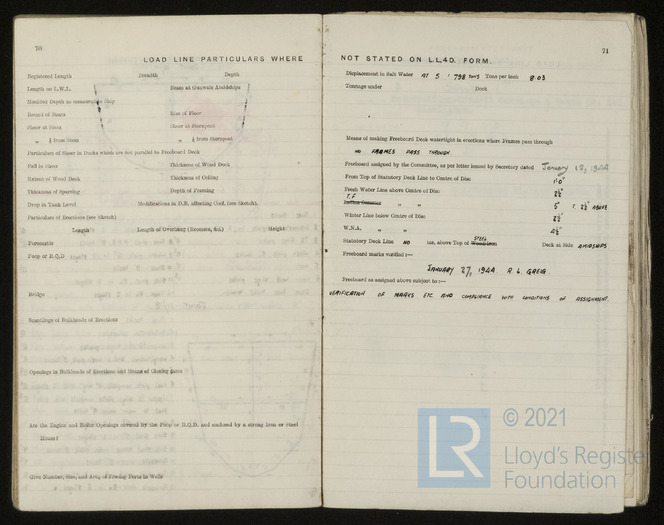 70
LOAD LINE PARTICULARS WHERE
Registered Length Breadth Depth
Length on L.W.L. Beam at Gunwale Amidships
Moulded Depth as measured Ship
Round of Beam Rise of Floor
Sheer at Stem Sheer at Sternpost
" ⅛ from Stem " ⅛ from Sternpost
Particulars of Sheer in Decks which are not parallel to Freeboard Deck
Fall in Sheer Thickness of Wood Deck
Extent of Wood Deck Thickness of Ceiling
Thickness of Sparring Depth of Framing
Drop in Tank Level Modifications in D.B. affecting Coef. (see Sketch).
Particulars of Erections (see Sketch)
Length Length of Overhang (Recesses, &c.) Height
Forecastle
Poop or R.Q.D
Bridge
Scantlings of Bulkheads of Erections
Openings in Bulkheads of Erections and Means of Closing same
Are the Engine and Boiler Openings covered by the Poop or R.Q.D. and enclosed by a strong iron or steel
House?
Give Number, Size, and Area of Freeing Ports in Wells
71
NOT STATED ON LL4D. FORM.
Displacement in Salt Water AT 5' 798 TONS Tons per inch 8.03
Tonnage under Deck
Means of making Freeboard Deck watertight in erections where Frames pass through
NO FRAMES PASS THROUGH
Freeboard assigned by the Committee, as per letter issued by Secretary dated January 18, 1944
From Top of Statutory Deck Line to Centre of Disc 1'-0"
Fresh Water Line above Centre of Disc 2½"
T.F.
Indian Summer " " 5"
Winter Line below Centre of Disc 2½"
W.N.A. " " 4½"
STEEL
Statutory Deck Line NO ins. above Top of Wood Iron Deck at Side AMIDSHIPS
Freeboard marks verified :—
JANUARY 27, 1944 R. L. GREIG.
Freeboard as assigned above subject to :—
VERIFICATION OF MARKS ETC AND COMPLIANCE WITH CONDITIONS OF ASSIGNMENT.
LR
© 2021
Lloyd's Register
Foundation